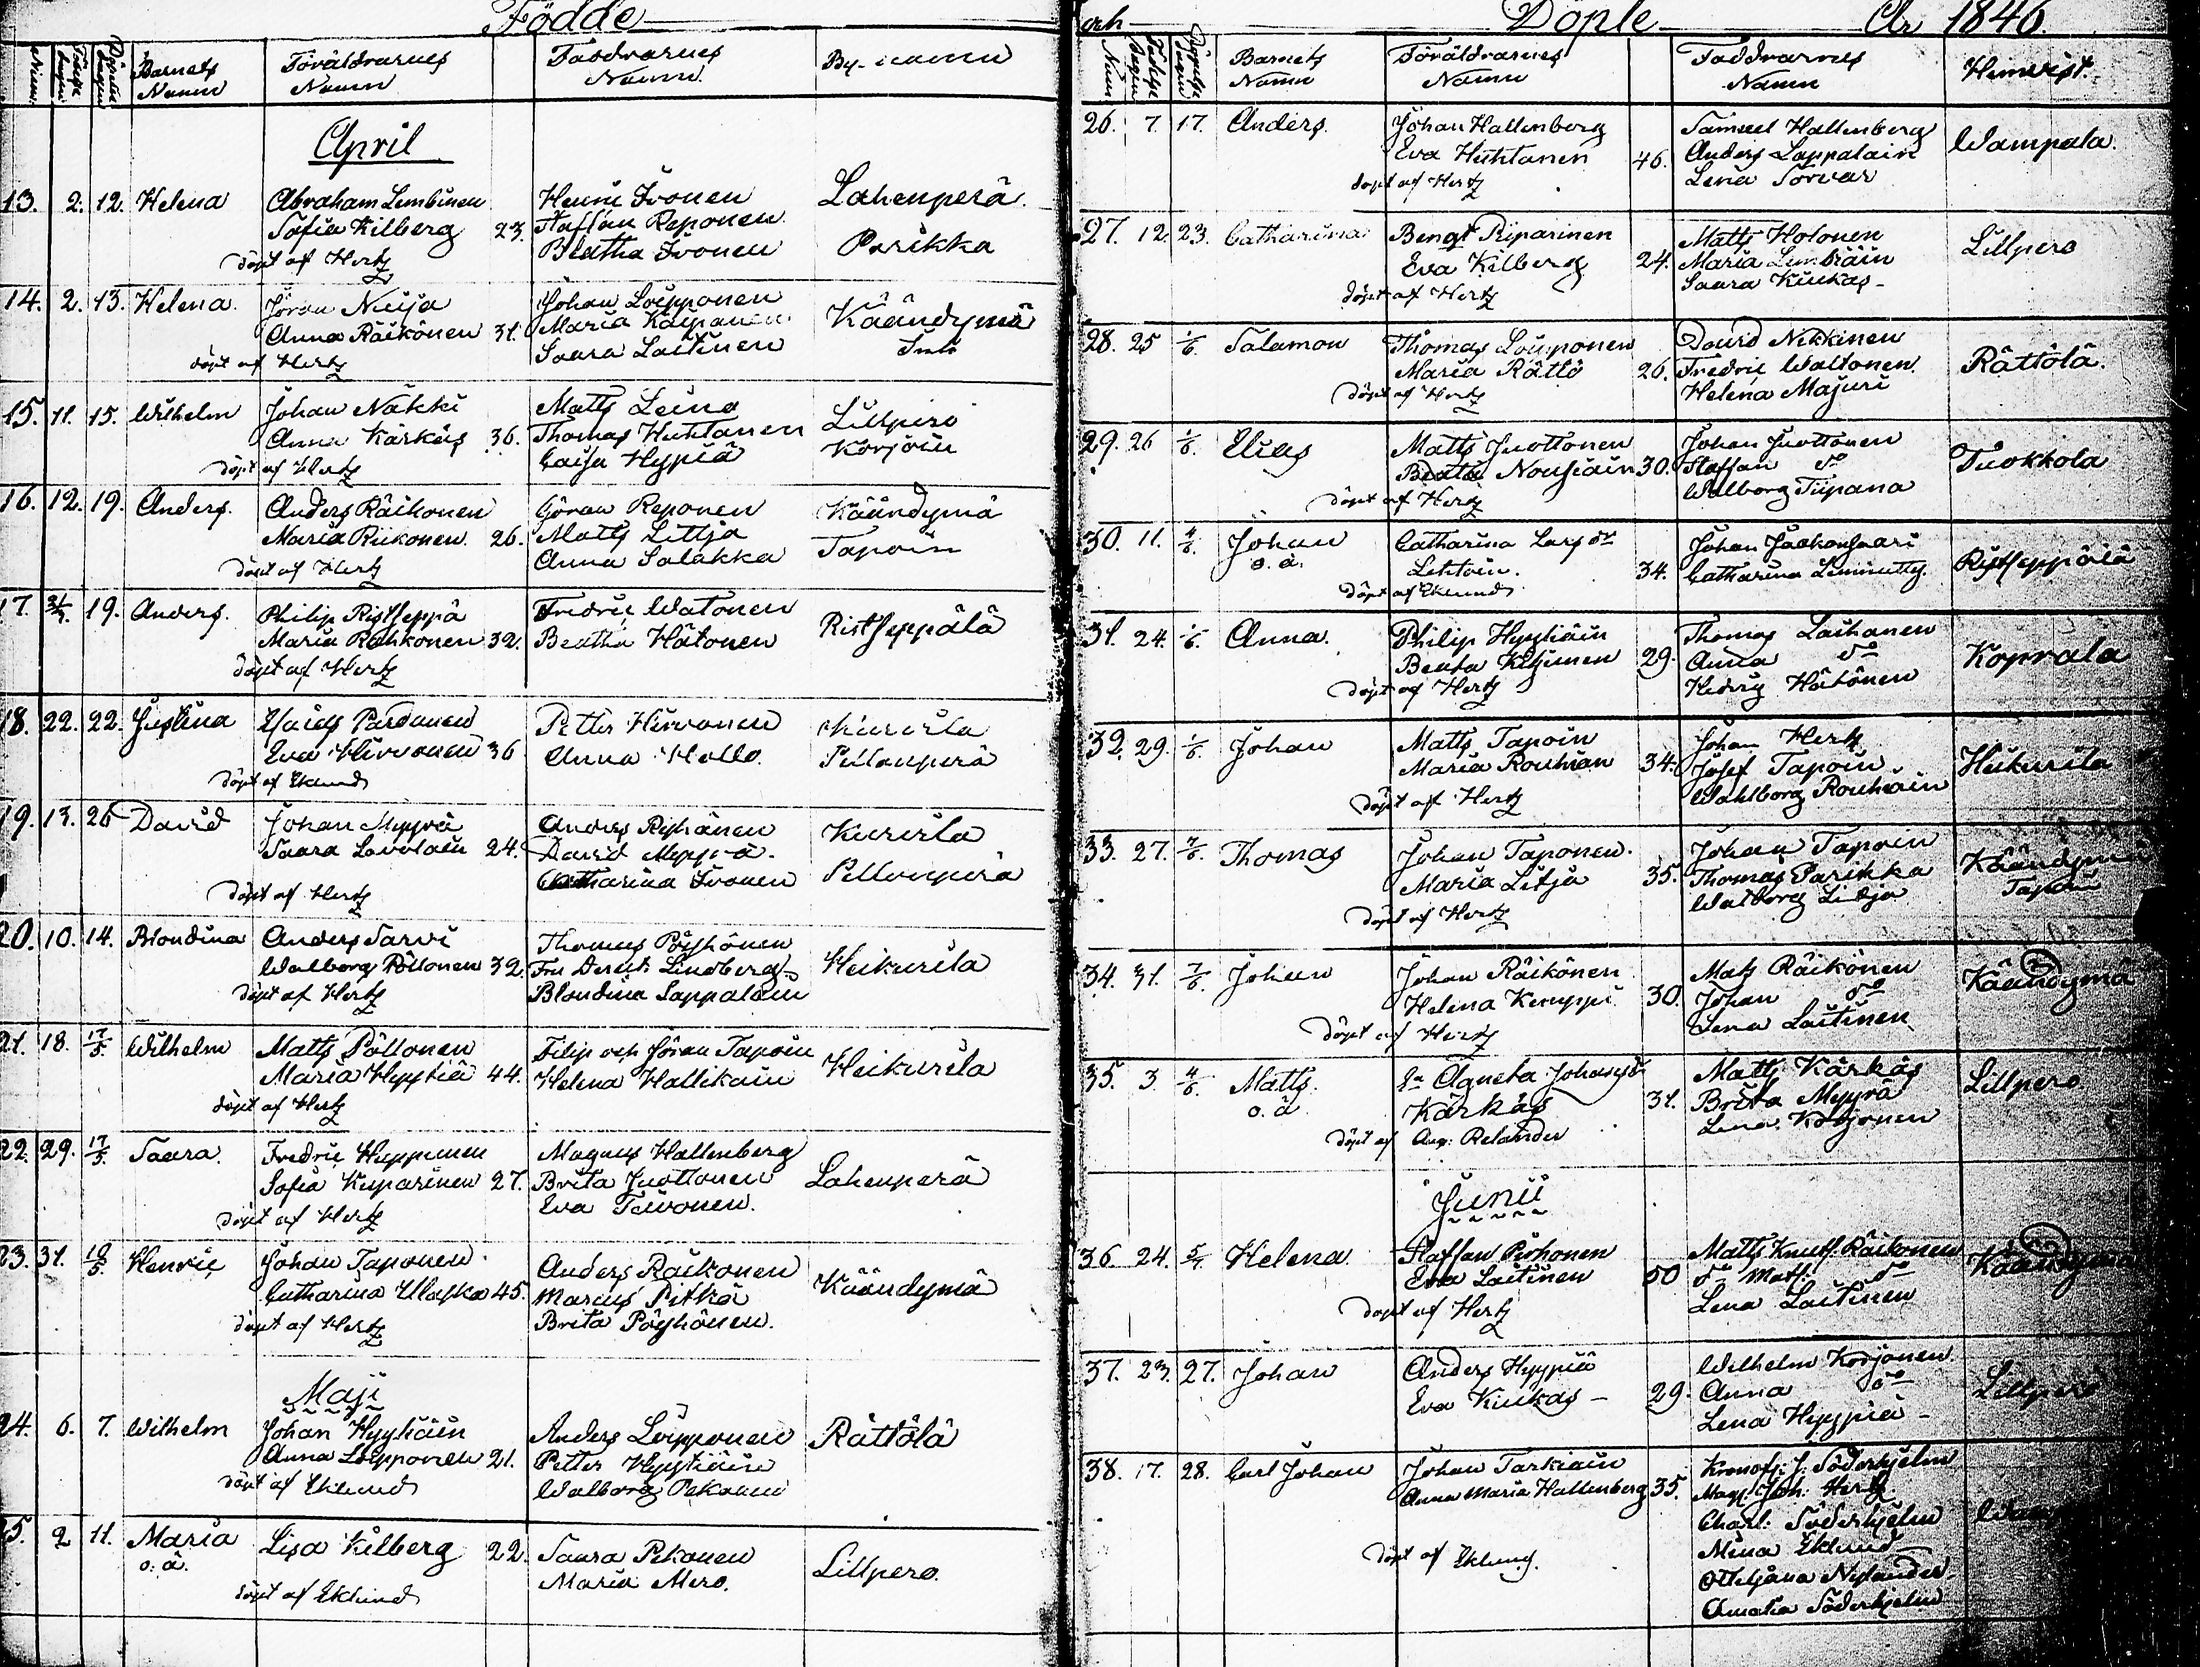 Födde
Num. Födelse dagen Döpelse dagen Barnets Namn Föräldrarnes Namn Faddrarnes Namn By-namn
April
13. 2. 12. Helena Abraham Lembinen Henric Ivonen Lahenperä
Sofia Kilberg 23. Staffan Reponen
döpt af Hertz Beatha Ivonen Parikka
14. 2. 13. Helena Jöran Nuija Johan Loipponen Käändymä
Anna Räikönen 31. Maria
döpt af Hertz Saara Laitinen
15. 11. 15. Wilhelm Johan Näkki Matts Leino Lillpero
Anna Kärkäs 36. Thomas Huhtanen Korjoin
döpt af Hertz Caisa Hyppiä
16. 12. 19. Anders Anders Räikonen Göran Reponen Käändymä
Maria Riikonen 26. Matts Littja Tapoin
döpt af Hertz Anna Salakka
17. 31/3 19. Anders Philip Ristseppä Fredric Watonen Ristseppälä
Maria Rahkonen 32. Beatha Hätonen
döpt af Hertz
18. 22. 22. Justina Esaias Pardanen Petter Hirvonen Kurista
Eva Hirvonen 36 Anna Hallo Pellonperä
döpt af Eklund
19. 13. 26 David Johan Myyrä Anders Ryhänen Kurista
Saara Lavolain 24. David Myyrä Pellonperä
döpt af Hertz Catharina Ivonen
20. 10. 14. Blondina Anders Sarvi Thomas Pöyhönen Heikurila
Walborg Pöllonen 32. Fru Lindberg
döpt af Hertz Blondina Lappalain
21. 18. 17/5 Wilhelm Matts Pöllonen Filip och Jöran Tapoin Heikurila
Maria Hyytiä 44. Helena Hallikain
döpt af Hertz
22. 29. 17/5 Saara. Fredric Huppunen Magnus Hallenberg Lahenperä
Sofia Kuparinen 27. Brita Juottonen
döpt af Hertz Eva Toivonen.
23. 31. 10/5 Henric Johan Taponen Anders Räikonen Käändymä
Catharina Ulaska 45. Marcus Pitkä
döpt af Hertz Brita Pöyhönen.
Maji
24. 6. 7. Wilhelm Johan Hyytiäin Anders Loipponen Rättölä
Anna Loipponen 21. Petter Hyytiäin
döpt af Eklund Walborg Pekonen
25. 2 11. Maria Lisa Kilberg 22. Saara Pekonen Lillpero.
o. ä. Maria Mero.
döpt af Eklund
och Döpte År 1846.
Num Födelse Dagen Döpelse Dagen Barnets Namn Föräldrarnes Namn Faddrarnes Namn Hemvist
26. 7. 17. Anders. Johan Hallenberg Samuel Hallenberg Wampala.
Eva Huhtanen 46. Anders Lappalain
döpt af Hertz Lena Torvar
27. 12. 23. Catharina Bengt Riparinen Matts Holonen Lillpero
Eva Kilberg 24. Maria Lembiäin
döpt af Hertz Saara Kiukas
28. 25 1/6 Salamon Thomas Loipponen David Nikkinen Rättölä.
Maria Rättö 26. Fredric Waltonen
döpt af Hertz Helena Majuri
29. 26 1/6 Elias Matts Juottonen Johan Juottonen Tuokkola
Beata Nousiain 30. Staffan do
döpt af Hertz Walborg Tiipana
30. 11. 4/6 Johan Catharina Lars dr Johan Jaakonsaari Ristseppälä
o. ä. Lehtoin. 34. Catharina
döpt af Eklund
31. 24. 1/6 Anna. Philip Hyytiäin Thomas Laihanen Koprala
Beata Kilpinen 29. Anna do
döpt af Hertz Hedvig Hätönen
32. 29. 1/6 Johan Matts Tapoin Johan Hertz Heikurila
Maria Rouhian 34. Josef Tapoin
döpt af Hertz Wahlborg Rouhiain
33. 27. 7/6 Thomas Johan Taponen. Johan Tapoin Käändymä
Maria Litja 35. Thomas Parikka Tapoin
döpt af Hertz Walborg Litja
34. 31. 7/6 Johan Johan Räikönen Mats Räikönen Käändymä
Helena Kemppi 30. Johan do
döpt af Hertz Lena Laitinen
35. 3. 4/6 Matts. Agneta Johans dr Matts Kärkäs Lillpero
o. ä. Kärkäs 31. Brita Myyrä
döpt af Aug: Relander Lena Korjonen
Junii
36 24. 5/7 Helena. Staffan Pirhonen Matts Knuts. Räikonen Käändymä
Eva Laitinen 50 do Matts. do
döpt af Hertz Lena Laitinen
37. 23. 27. Johan Anders Hyppiä Wilhelm Korjonen. Lillpero
Eva Kiukas 29. Anna do
Lena Hyppiä
38. 17. 28. Carl Johan Johan Tarkiain Kronof: J. Söderhjelm
Anna Maria Hallenberg 35. Mag: Joh: Hertz
Charl. Söderhjelm
döpt af Eklund. Mina Eklund
Ottiljana Nylander
Amalia Söderhjelm